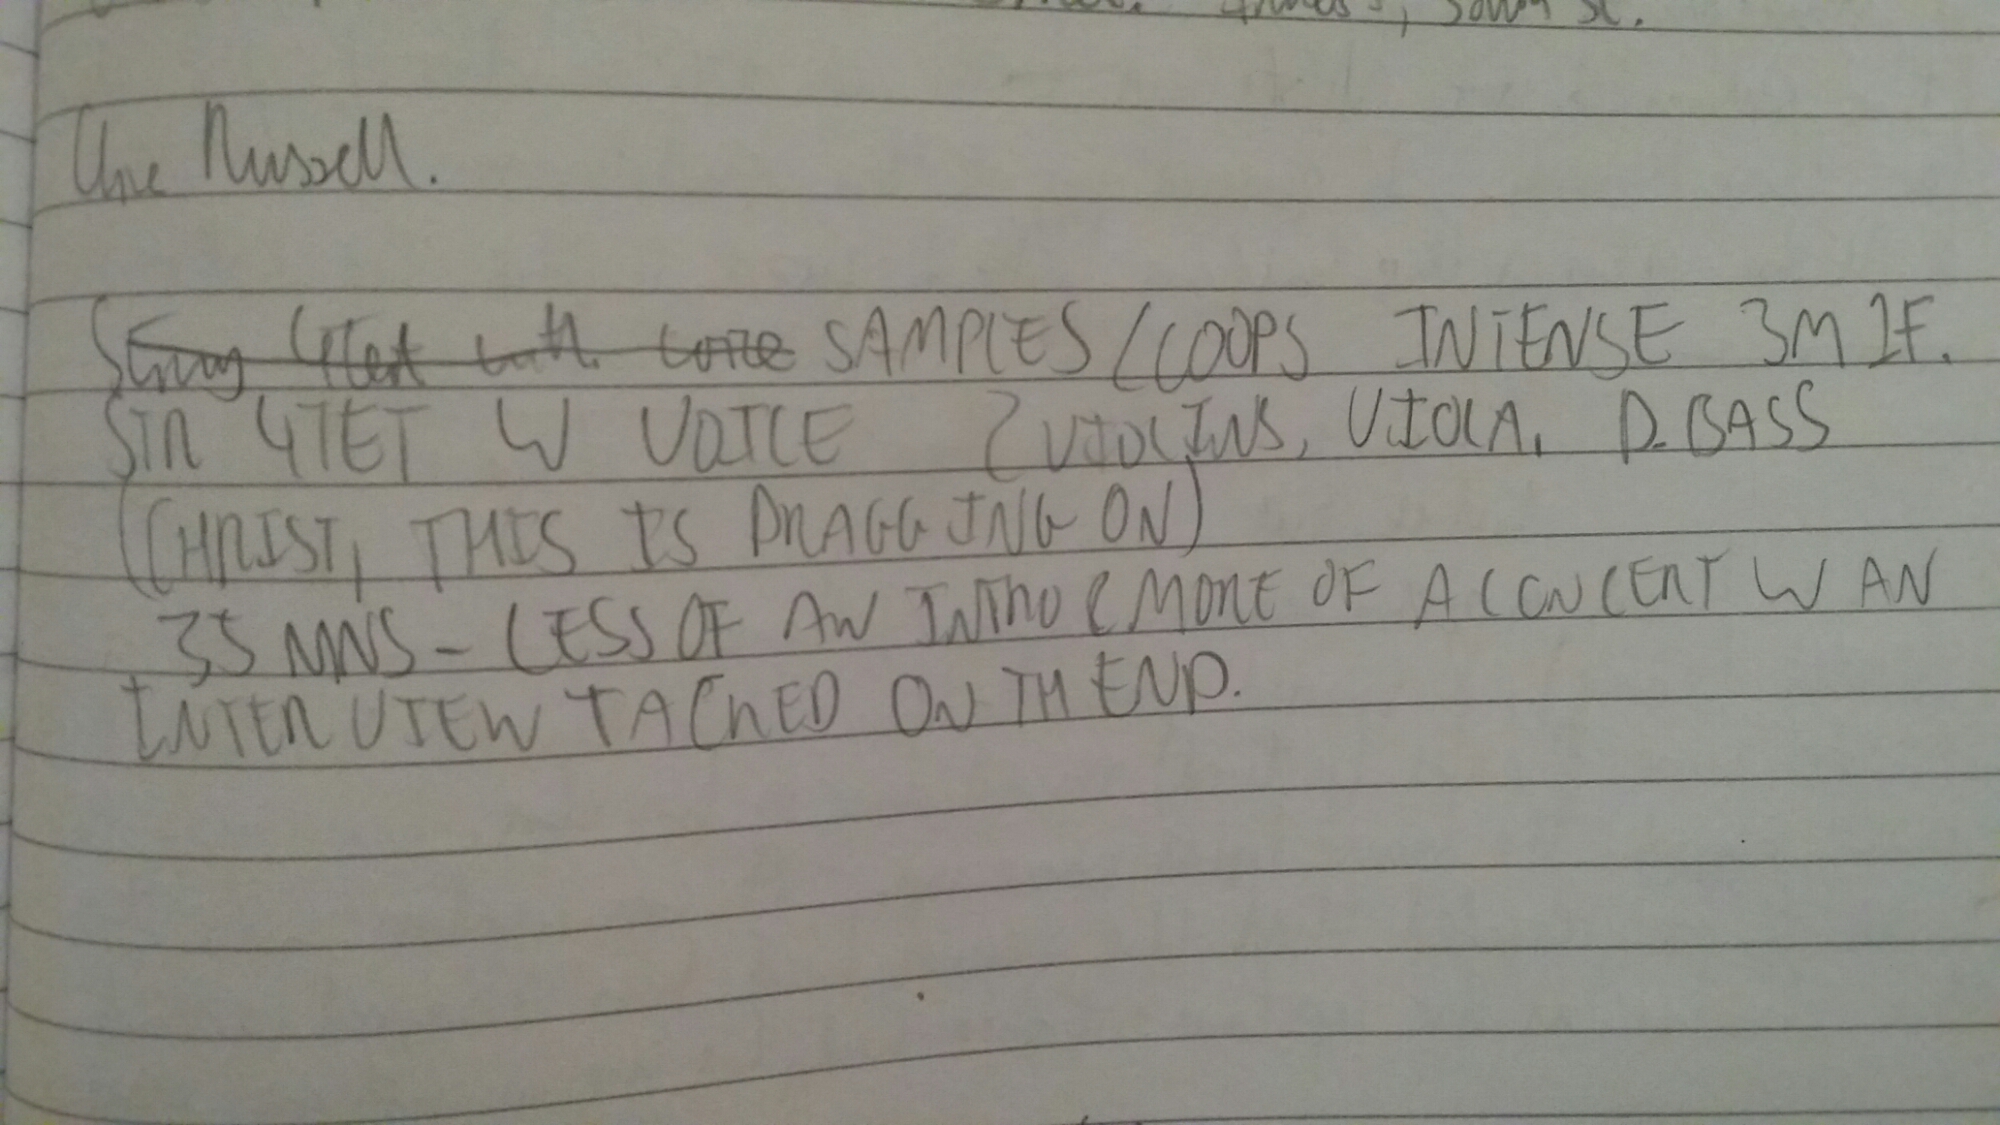 Russell.
String 4tet with voice SAMPLES/LOOPS INTENSE 3M 2F.
STR 4TET W VOICE 2 VIOLINS, VIOLA, D.BASS
(CHRIST, THIS IS DRAGGING ON)
35 MNS - LESS OF AN INTRO & MORE OF A CONCERT W AN
INTERVIEW TACKED ON TH END.